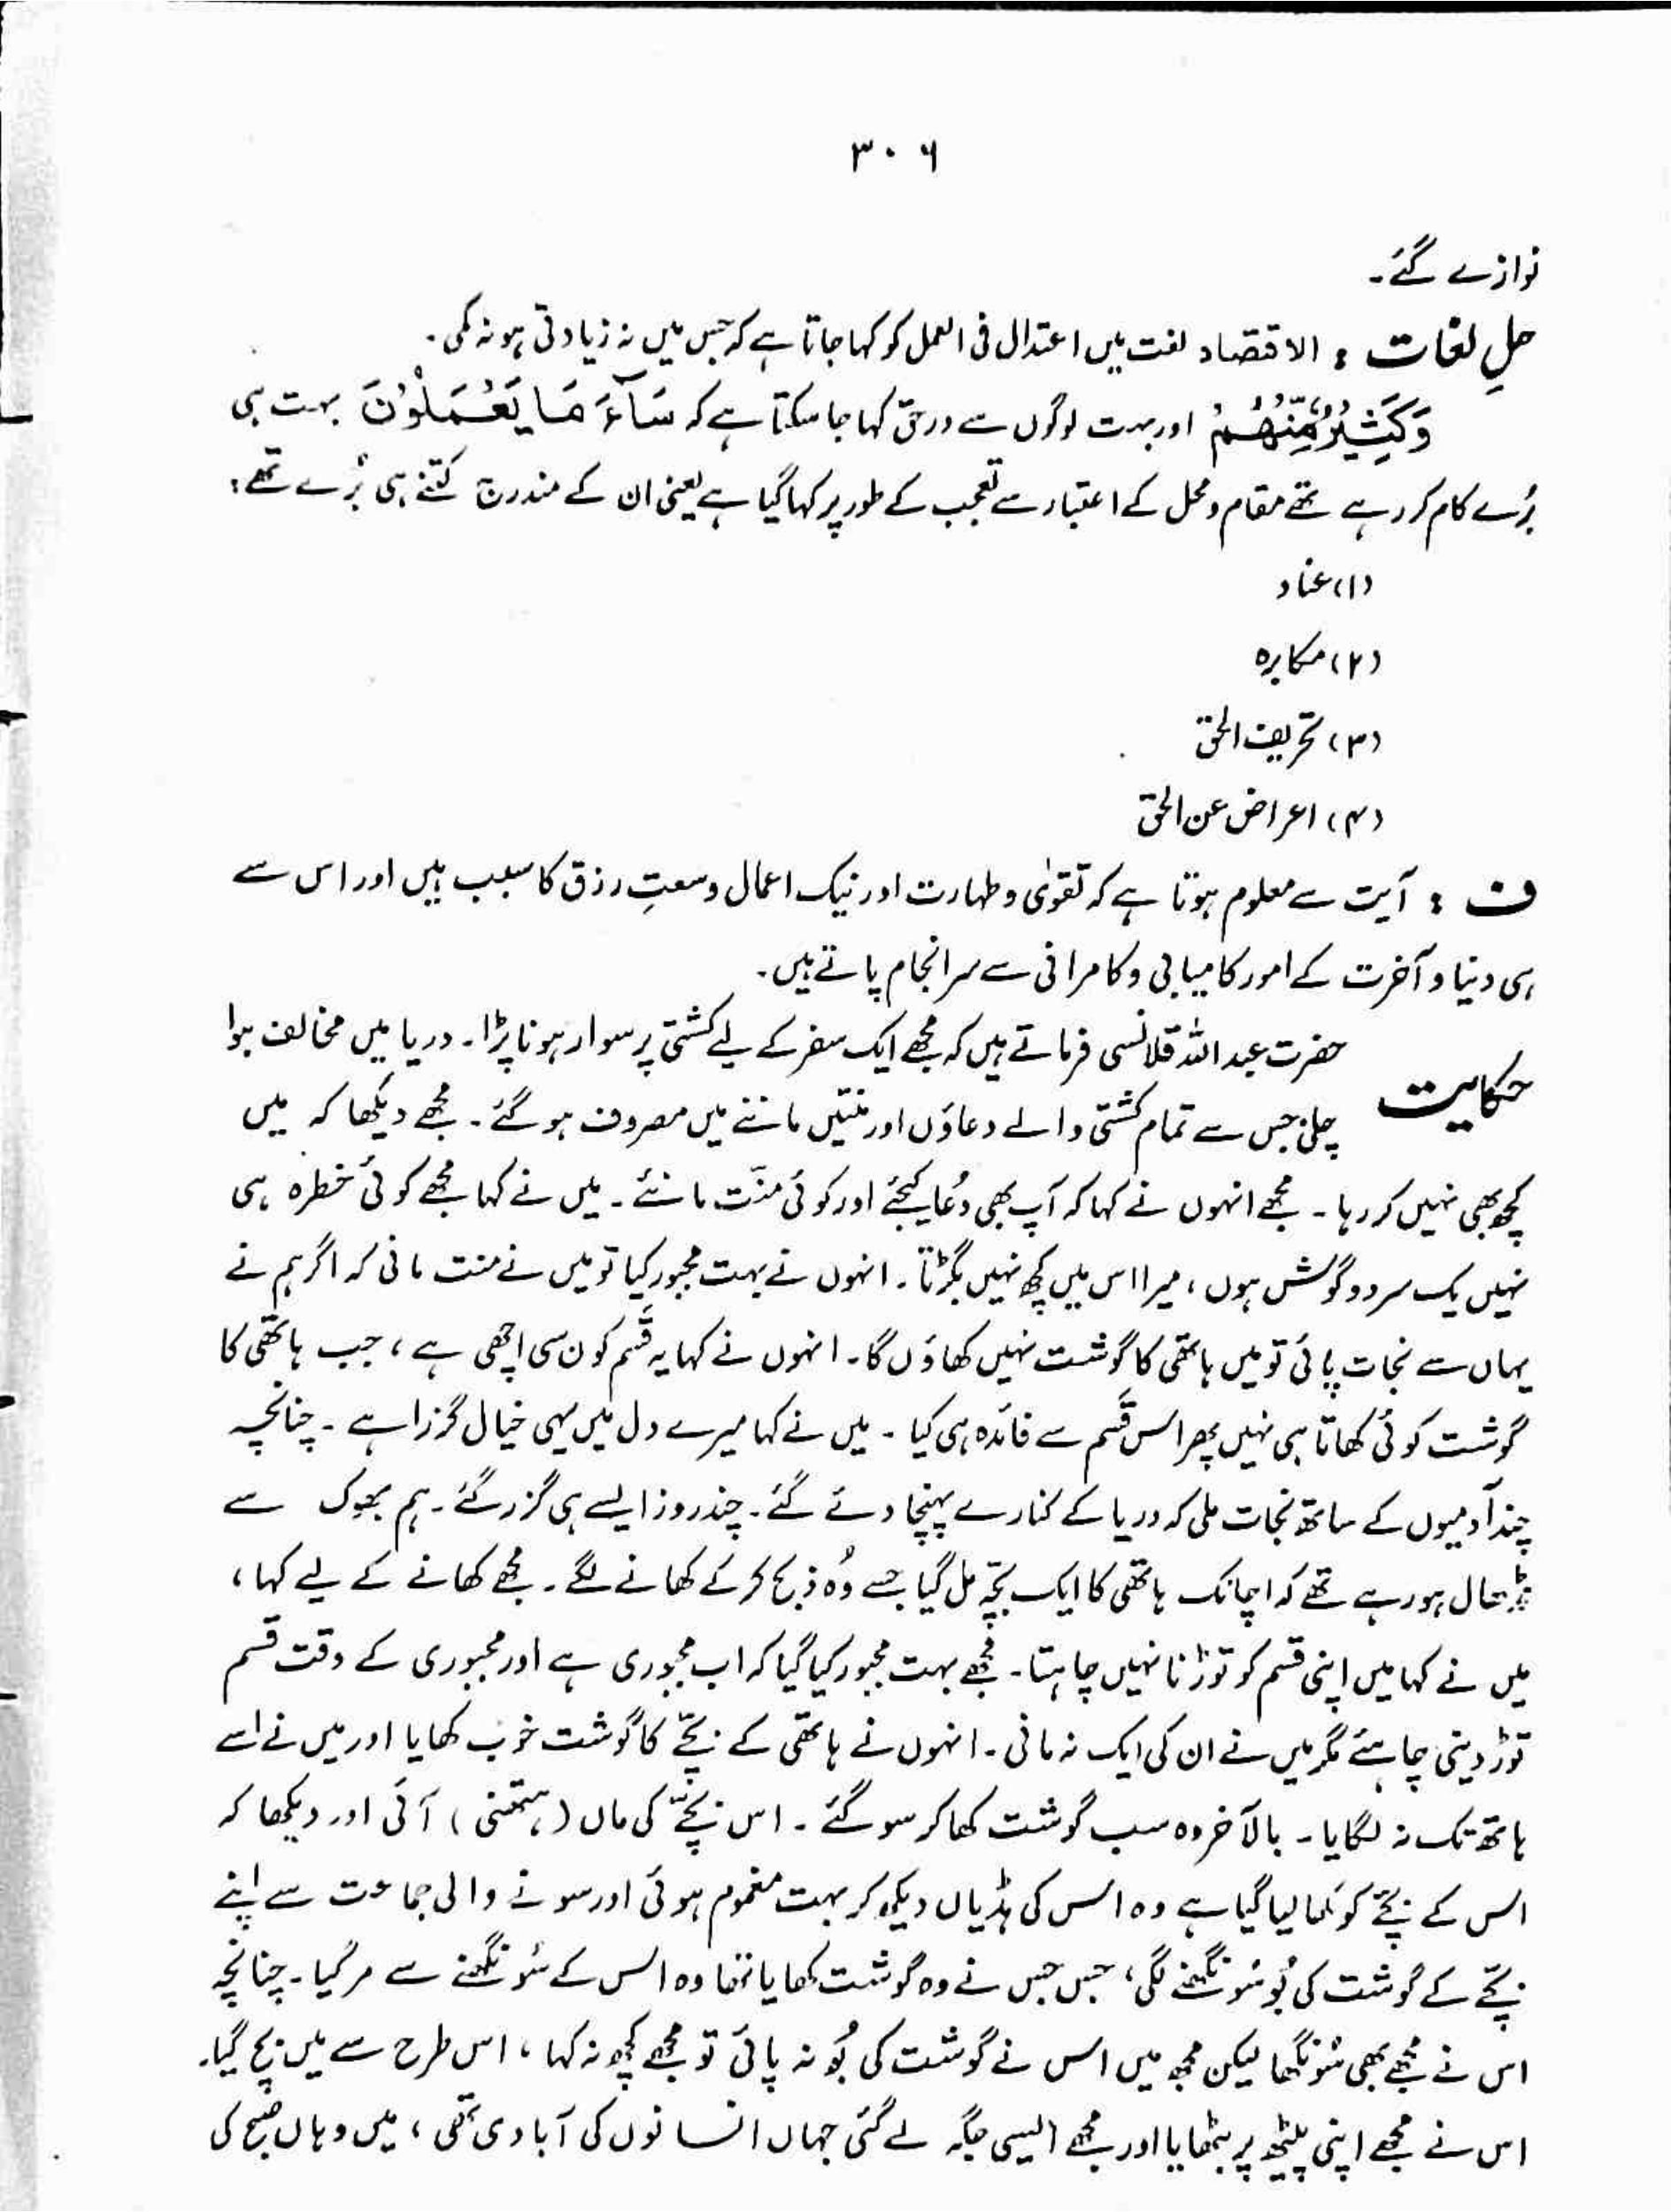 ۳۰۶
نوازے گئے۔
حلِ لغات : الاقتصاد لغت میں اعتدال فی العمل کو کہا جاتا ہے کہ جس میں نہ زیادتی ہو نہ کمی۔
وَكَثِيْرٌ مِّنْهُمْ اور بہت لوگوں سے درحق کہا جا سکتا ہے کہ سَآءَ مَا يَعْمَلُوْنَ بہت ہی
بُرے کام کر رہے تھے مقام و محل کے اعتبار سے تعجب کے طور پر کہا گیا ہے یعنی ان کے مندرج کتنے ہی بُرے تھے :
(۱) عناد
(۲) مکابرہ
(۳) تحریف الحق
(۴) اعراض عن الحق
ف : آیت سے معلوم ہوتا ہے کہ تقویٰ و طہارت اور نیک اعمال وسعتِ رزق کا سبب ہیں اور اس سے
ہی دنیا و آخرت کے امور کامیابی و کامرانی سے سرانجام پاتے ہیں۔
حکایت حضرت عبداللہ قلانسی فرماتے ہیں کہ مجھے ایک سفر کے لیے کشتی پر سوار ہونا پڑا۔ دریا میں مخالف ہوا
چلی جس سے تمام کشتی والے دعاؤں اور منتیں ماننے میں مصروف ہو گئے۔ مجھے دیکھا کہ میں
کچھ بھی نہیں کر رہا۔ مجھے انہوں نے کہا کہ آپ بھی دُعا کیجئے اور کوئی منّت مانئے۔ میں نے کہا مجھے کوئی خطرہ ہی
نہیں یک سر دو گوش ہوں، میرا اس میں کچھ نہیں بگڑتا۔ انہوں نے بہت مجبور کیا تو میں نے منت مانی کہ اگر ہم نے
یہاں سے نجات پائی تو میں ہاتھی کا گوشت نہیں کھاؤں گا۔ انہوں نے کہا یہ قَسم کون سی اچھی ہے، جب ہاتھی کا
گوشت کوئی کھاتا ہی نہیں پھر اس قَسم سے فائدہ ہی کیا۔ میں نے کہا میرے دل میں یہی خیال گزرا ہے۔ چنانچہ
چند آدمیوں کے ساتھ نجات ملی کہ دریا کے کنارے پہنچا دئے گئے۔ چند روز ایسے ہی گزر گئے۔ ہم بھوک سے
نڈھال ہو رہے تھے کہ اچانک ہاتھی کا ایک بچّہ مل گیا جسے وُہ ذبح کر کے کھانے لگے۔ مجھے کھانے کے لیے کہا،
میں نے کہا میں اپنی قسم کو توڑنا نہیں چاہتا۔ مجھے بہت مجبور کیا گیا کہ اب مجبوری ہے اور مجبوری کے وقت قسم
توڑ دینی چاہئے مگر میں نے ان کی ایک نہ مانی۔ انہوں نے ہاتھی کے بچّے کا گوشت خوب کھایا اور میں نے اسے
ہاتھ تک نہ لگایا۔ بالآخر وہ سب گوشت کھا کر سو گئے۔ اس بچّے کی ماں (ہتھنی) آئی اور دیکھا کہ
اس کے بچّے کو کھا لیا گیا ہے وہ اس کی ہڈیاں دیکھ کر بہت مغموم ہوئی اور سونے والی جماعت سے اپنے
بچّے کے گوشت کی بُو سُونگھنے لگی، جس جس نے وہ گوشت کھایا تھا وہ اس کے سُونگھنے سے مر گیا۔ چنانچہ
اس نے مجھے بھی سُونگھا لیکن مجھ میں اس نے گوشت کی بُو نہ پائی تو مجھے کچھ نہ کہا، اس طرح سے میں بچ گیا۔
اس نے مجھے اپنی پیٹھ پر بٹھایا اور مجھے ایسی جگہ لے گئی جہاں انسانوں کی آبادی تھی، میں وہاں صبح کی